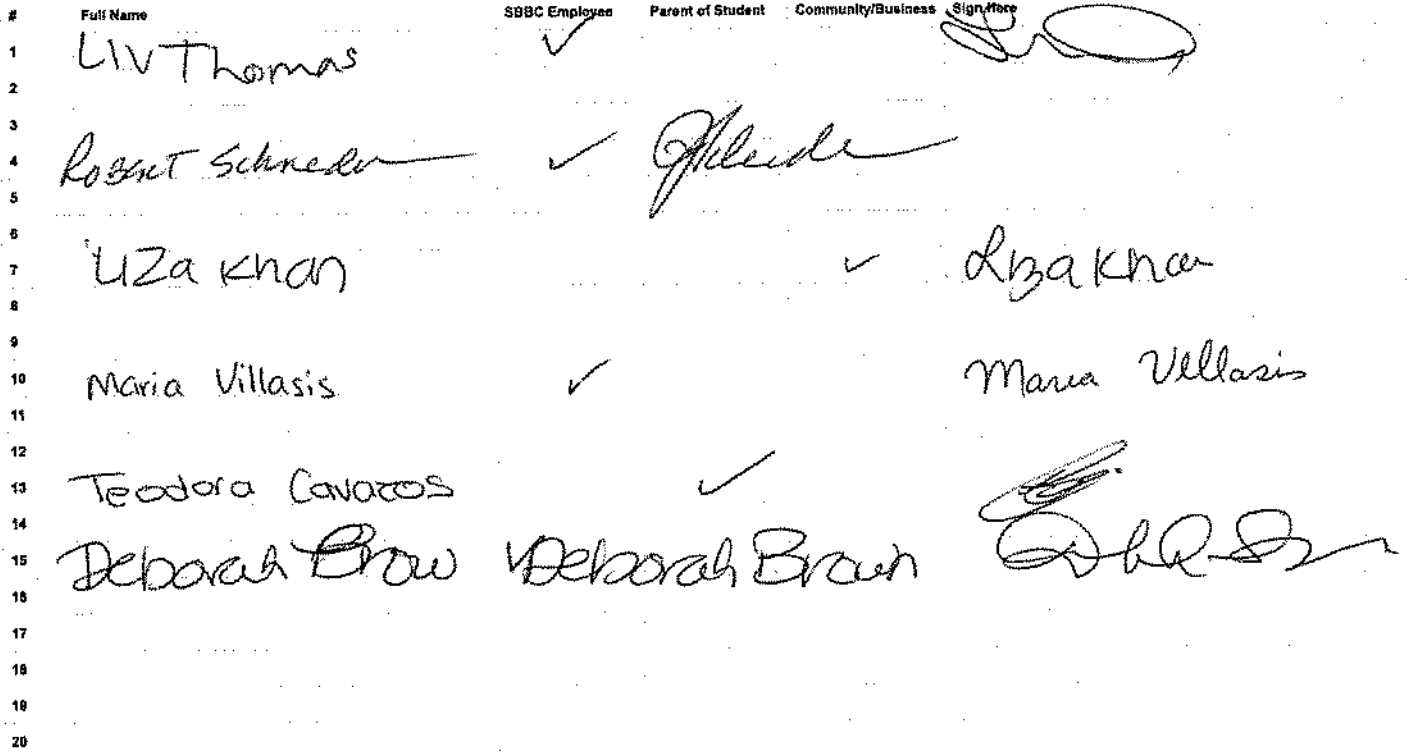 # Full Name SBBC Employee Parent of Student Community/Business Sign Here
1 LIV Thomas ✓
2
3
4 Robert Schneider ✓
5
6
7 LIZa Khan ✓ Liza Khan
8
9
10 Maria Villasis ✓ Maria Villasis
11
12
13 Teodora Cavazos ✓
14
15 Deborah Brow ✓ Deborah Brown
16
17
18
19
20